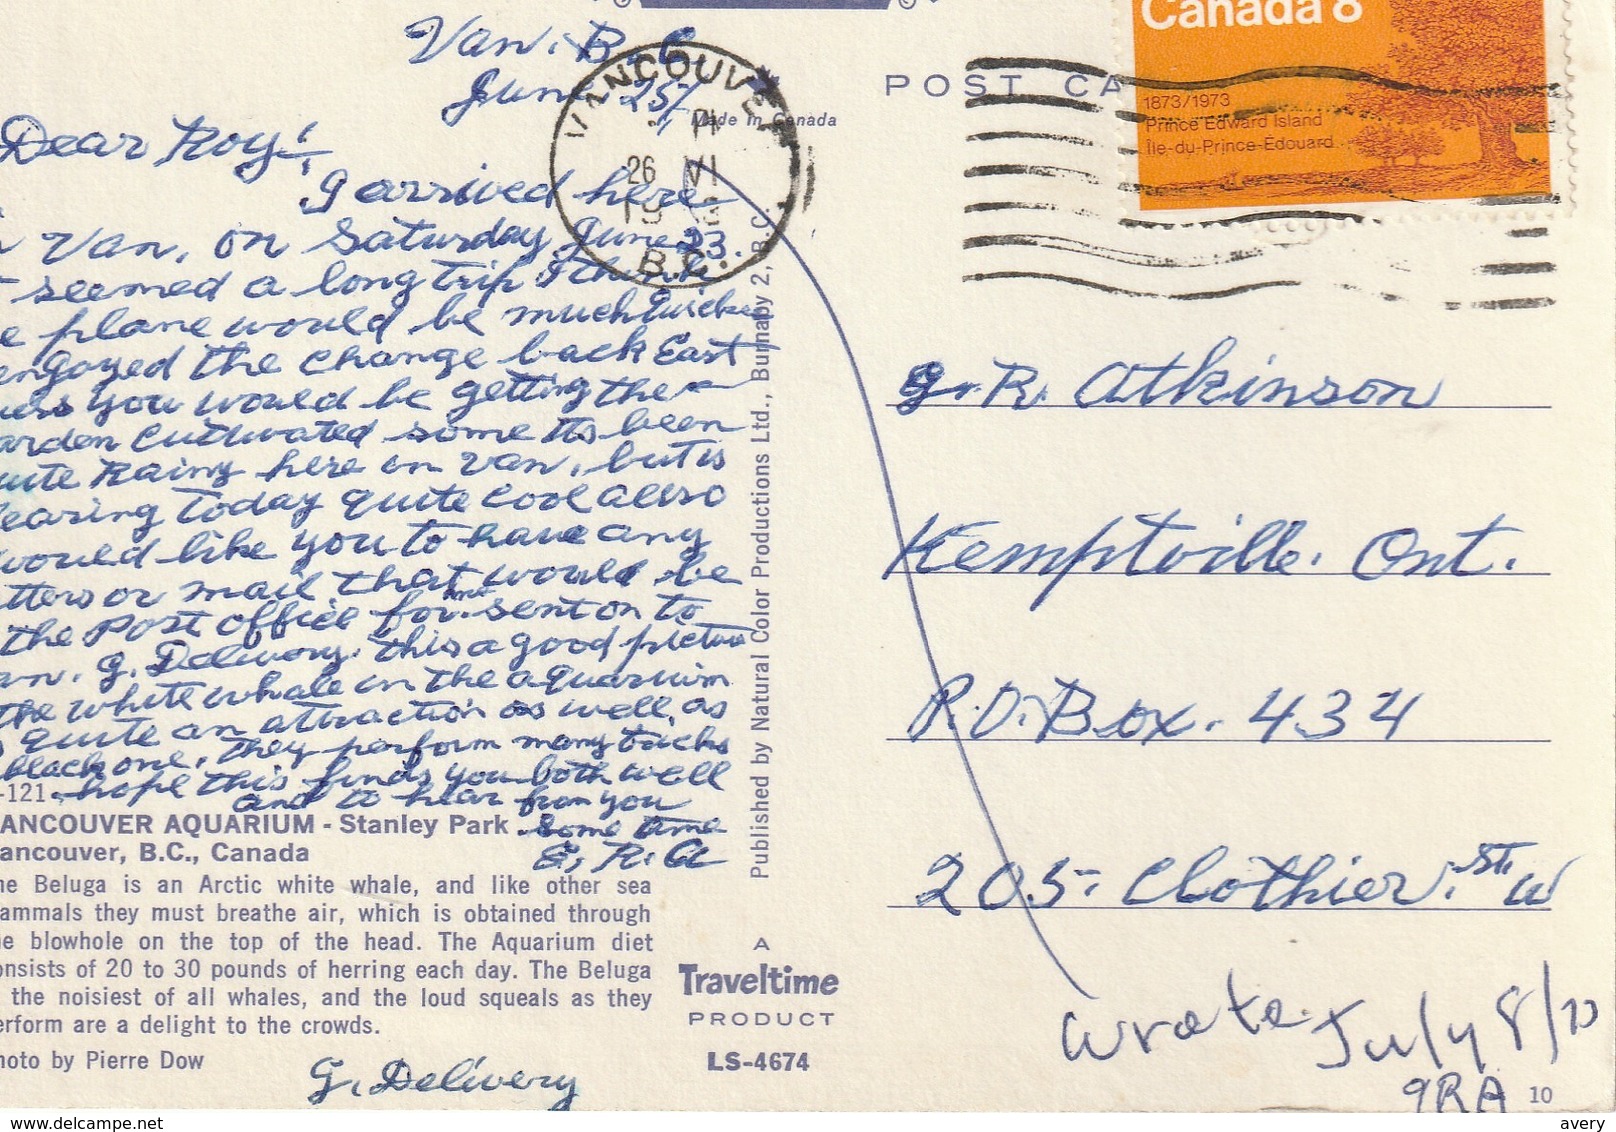 Van. B.C.
June 25/
Made In Canada
Dear Roy:
I arrived here
Van. on Saturday June 23.
seemed a long trip I think
e plane would be much Quicker
engoyed the change back East
uess you would be getting the
arden Cultivated some its been
uite Rainy here in Van. but is
learing Today quite cool allso
would like you to have any
tters or mail that would be
the Post office for me sent on to
an. G. Delivery. this a good picture
the white whale in the aquarium
quite an attraction as well as
black one. they perform many tricks
-121 hope this finds you both well
and to hear from you
ANCOUVER AQUARIUM - Stanley Park some time
ancouver, B.C., Canada E. R. A
he Beluga is an Arctic white whale, and like other sea
ammals they must breathe air, which is obtained through
he blowhole on the top of the head. The Aquarium diet
onsists of 20 to 30 pounds of herring each day. The Beluga
the noisiest of all whales, and the loud squeals as they
erform are a delight to the crowds.
hoto by Pierre Dow
G. Delivery
VANCOUVER
26 VI
19
B.C.
Published by Natural Color Productions Ltd., Burnaby 2, B.C.
A
Traveltime
PRODUCT
LS-4674
POST CA
Canada 8
1873/1973
Prince Edward Island
Île-du-Prince-Édouard
G. R. Atkinson
Kemptville. Ont.
P.O. Box. 434
205 Clothier. St. W
wrote July 8/73
GRA 10
www.delcampe.net
avery